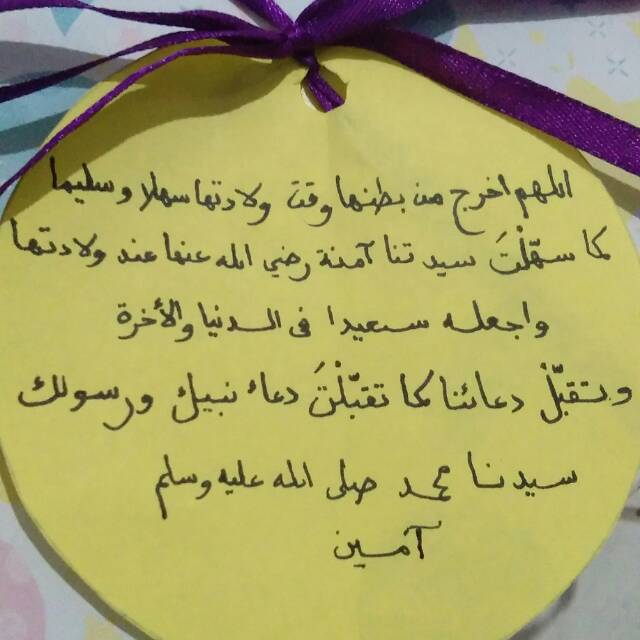 اللهم اخرج من بطنها وقت ولادتها سهلا وسليما
كما سهّلْتَ سيدتنا آمنة رضي الله عنها عند ولادتها
واجعله سعيدا في الدنيا والأخرة
وتقبّلْ دعائنا كما تقبّلْتَ دعاء نبيك ورسولك
سيدنا محمد صلى الله عليه وسلم
آمين